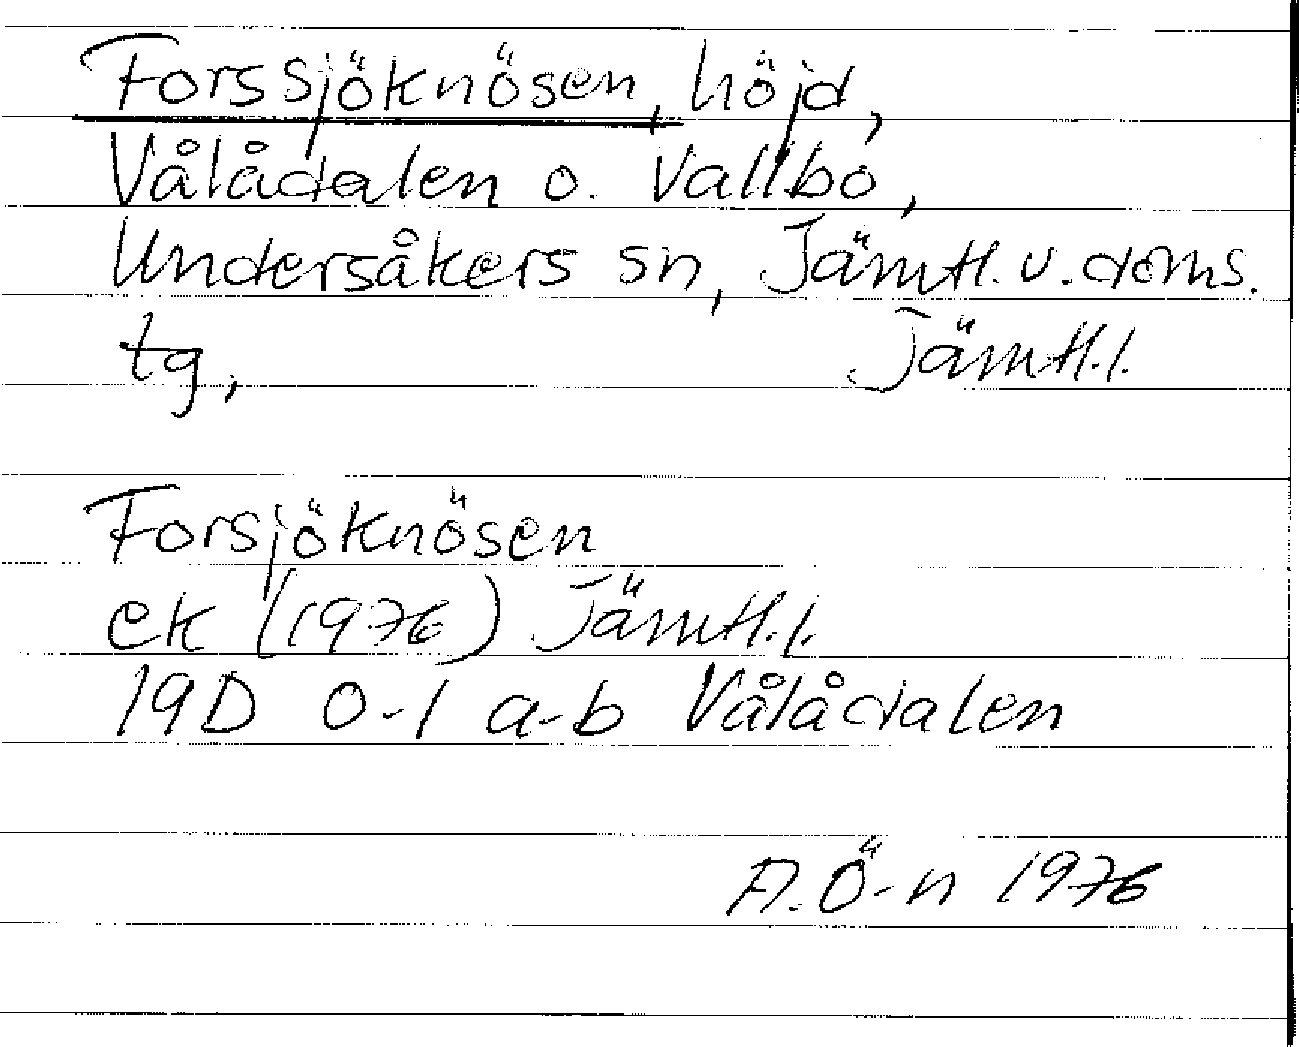 Forssjöknösen, höjd,
Vålådalen o. Vallbo,
Undersåkers sn, Jämtl. v. doms.
tg, Jämtl.l.
Forsjöknösen
ek (1976) Jämtl.l.
19D 0-1 a-b Vålådalen
A.Ö-n 1976